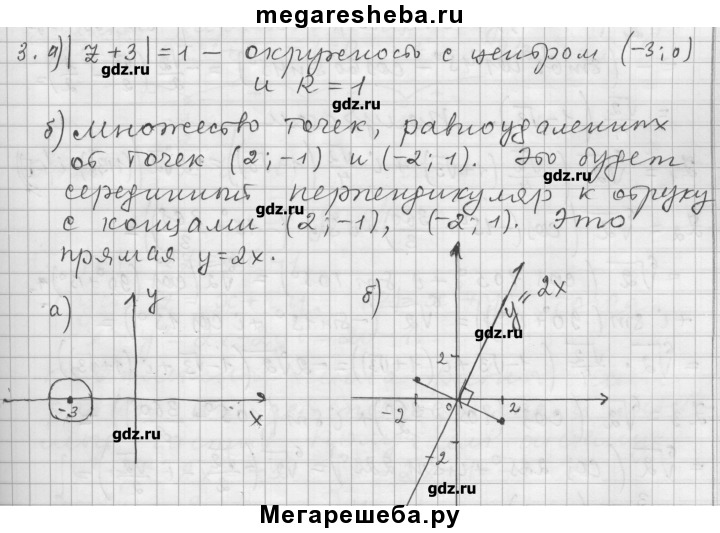 megaresheba.ru
3. а) |z + 3| = 1 — окружность с центром (-3; 0)
gdz.ru
и R = 1
gdz.ru
б) множество точек, равноудаленных
от точек (2; -1) и (-2; 1). Это будет
gdz.ru
серединный перпендикуляр к отрезку
gdz.ru
с концами (2; -1), (-2; 1). Это
прямая y = 2x.
а) y
б) y = 2x
gdz.ru
2
-3 x
-2 0 2
gdz.ru
-2
gdz.ru
Мегарешеба.ру